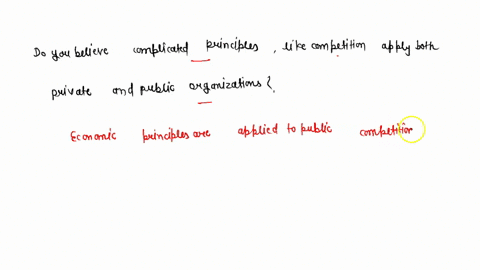 Do you believe complicated principles, like competition apply both
private and public organizations {.
Economic principles are applied to public competition